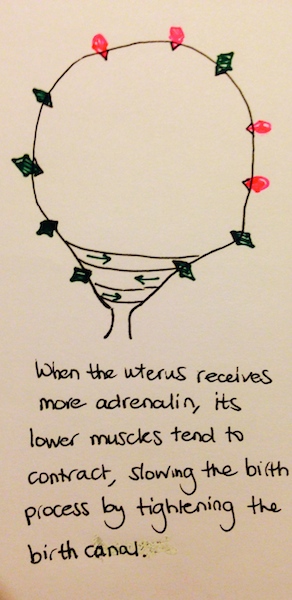 When the uterus receives
more adrenalin, its
lower muscles tend to
contract, slowing the birth
process by tightening the
birth canal.